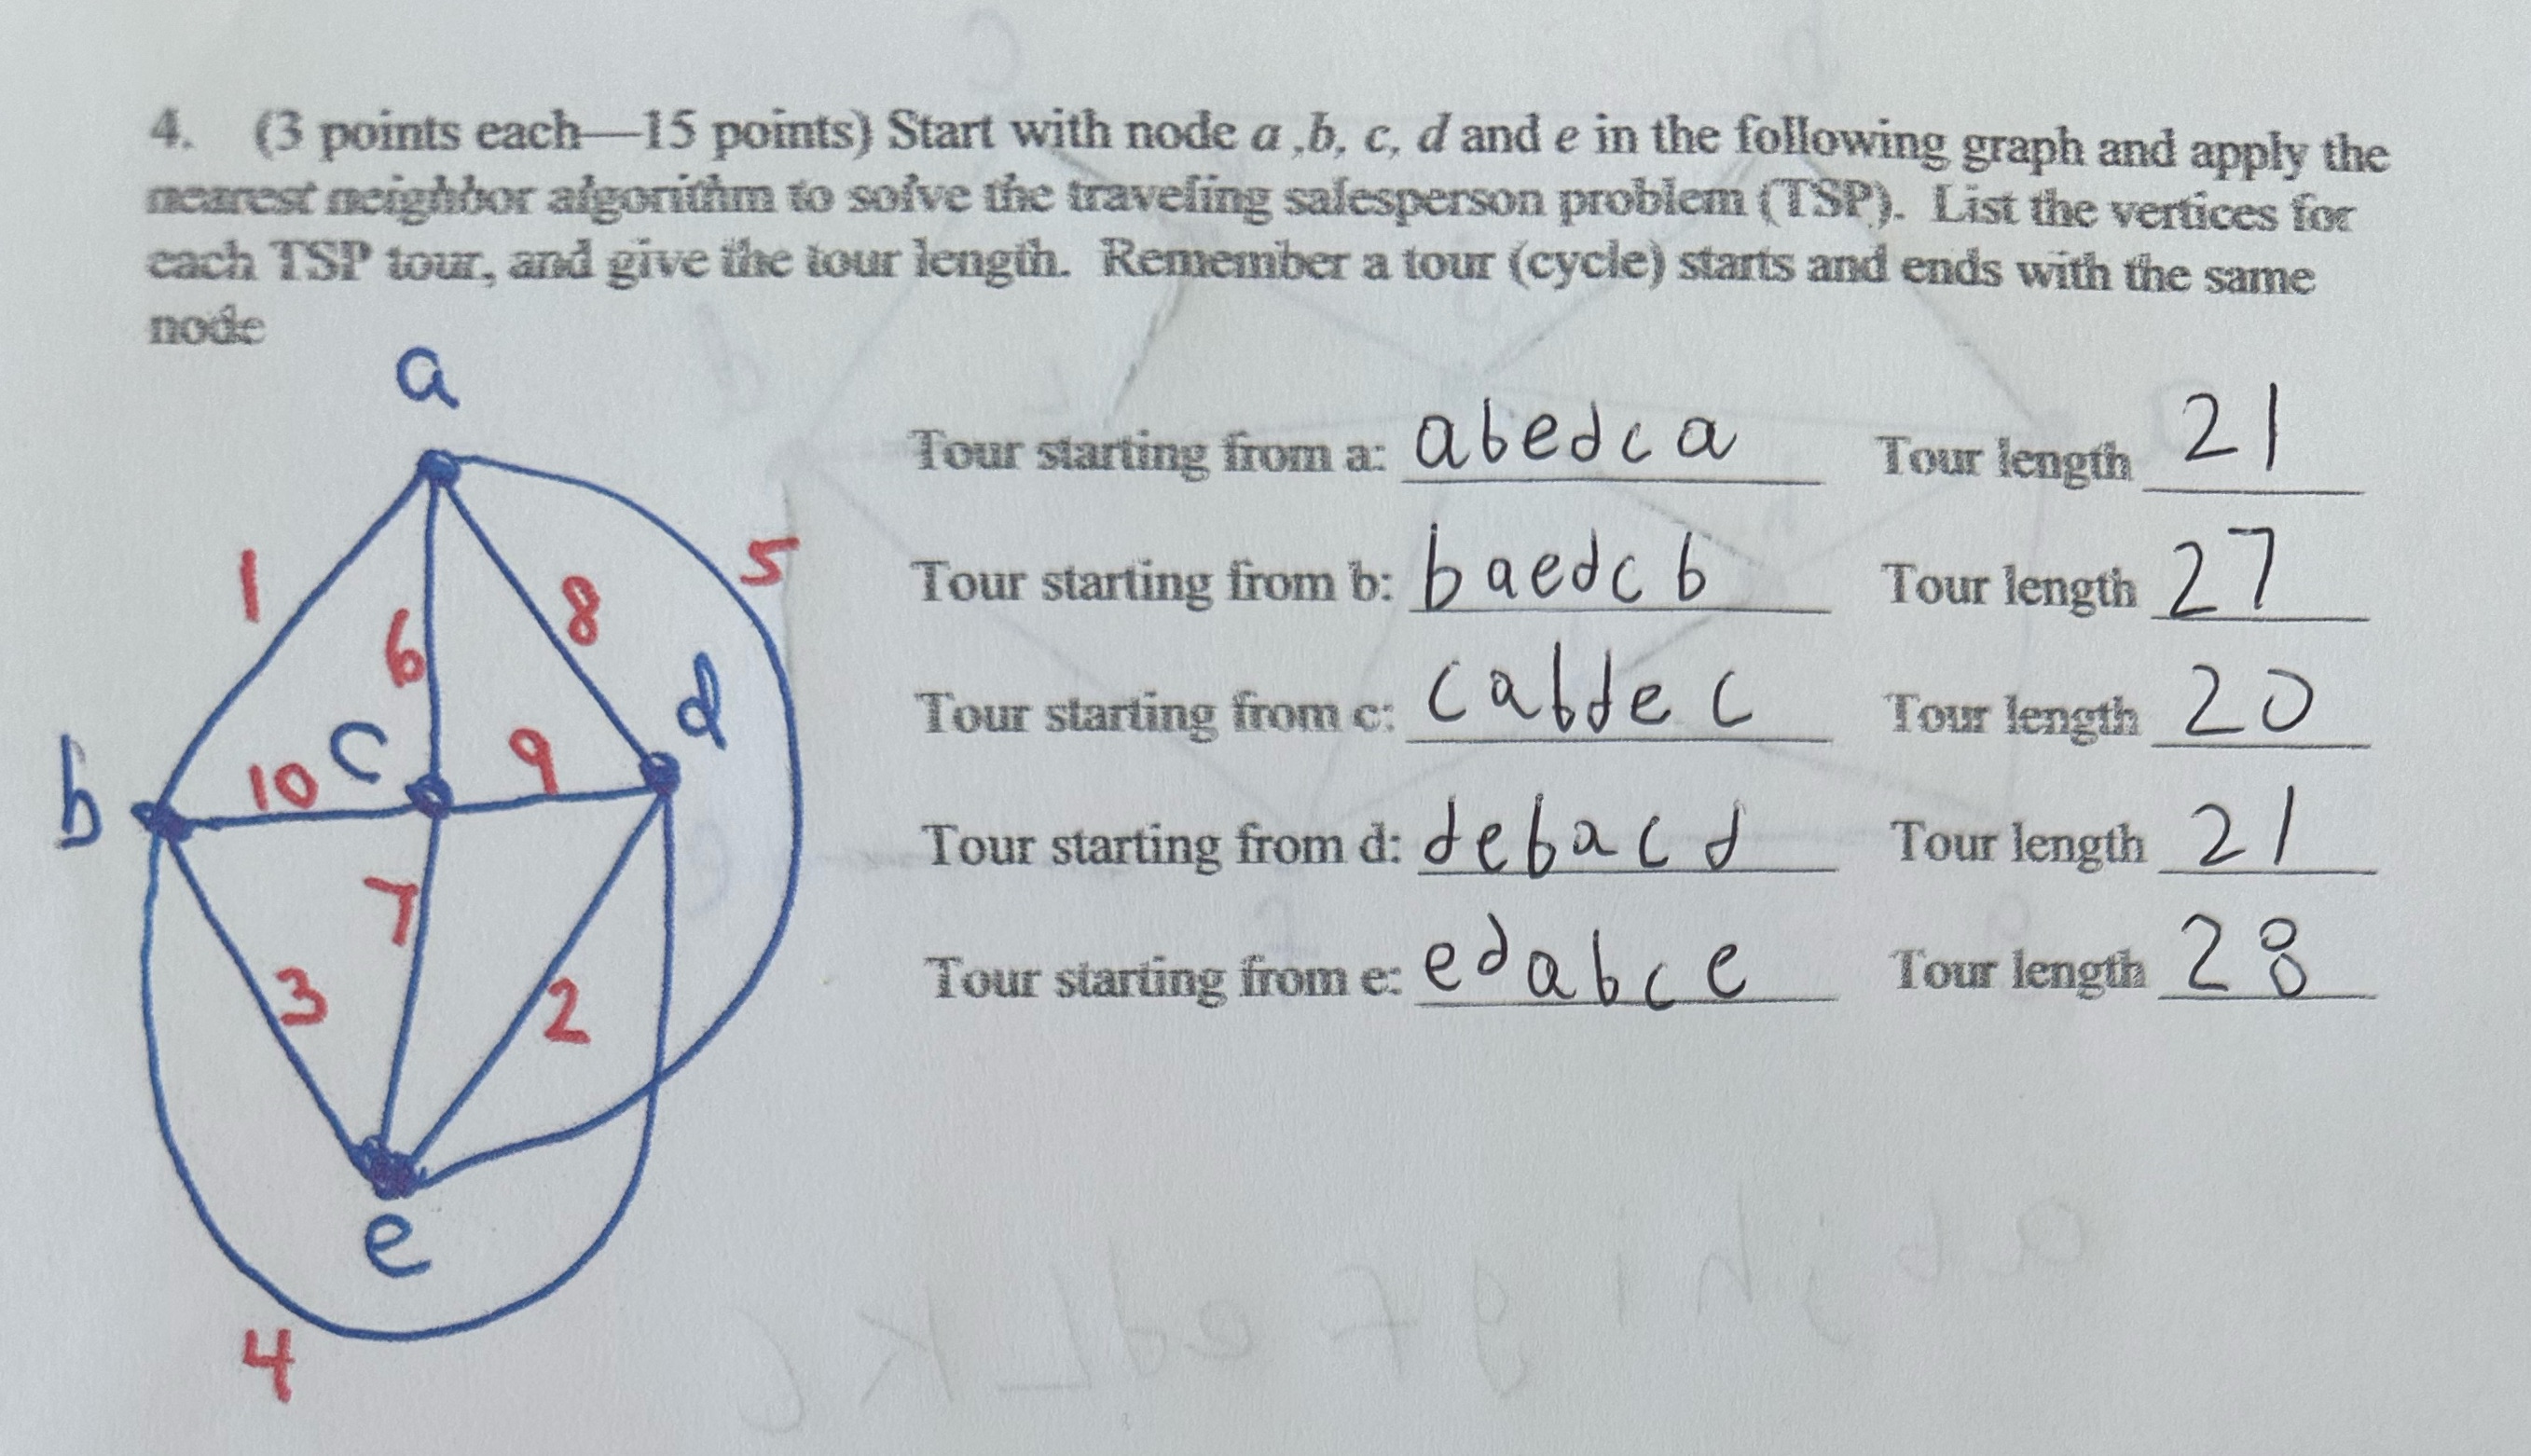 4. (3 points each—15 points) Start with node a ,b, c, d and e in the following graph and apply the
nearest neighbor algorithm to solve the traveling salesperson problem (TSP). List the vertices for
each TSP tour, and give the tour length. Remember a tour (cycle) starts and ends with the same
node
a
Tour starting from a: abedca Tour length 21
1
5
Tour starting from b: baedcb Tour length 27
6
8
d
Tour starting from c: cabdec Tour length 20
b
10
c
9
Tour starting from d: debacd Tour length 21
7
Tour starting from e: edabce Tour length 28
3
2
e
4